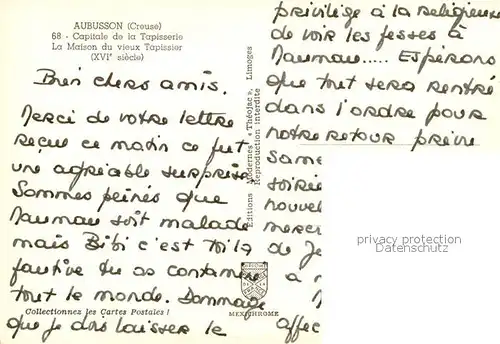 AUBUSSON (Creuse)
68 - Capitale de la Tapisserie
La Maison du vieux Tapissier
(XVIe siècle)
Bien chers amis.
Merci de votre lettre
reçue ce matin ce fut
une agréable surprise
Sommes peinés que
Maman soit malade
mais Bibi c'est toi la
fautive tu as contaminé
tout le monde. Dommage
que je dois laisser le
Collectionnez les Cartes Postales !
Editions Modernes « Théojac », Limoges
Reproduction interdite
MEXICHROME
privilège à la religieuse
de voir les fesses à
Maman..... Espérons
que tout sera rentré
dans l'ordre pour
notre retour prévu
Same
soirée
nouvel
merci
de Je
a
affec
privacy protection
Datenschutz